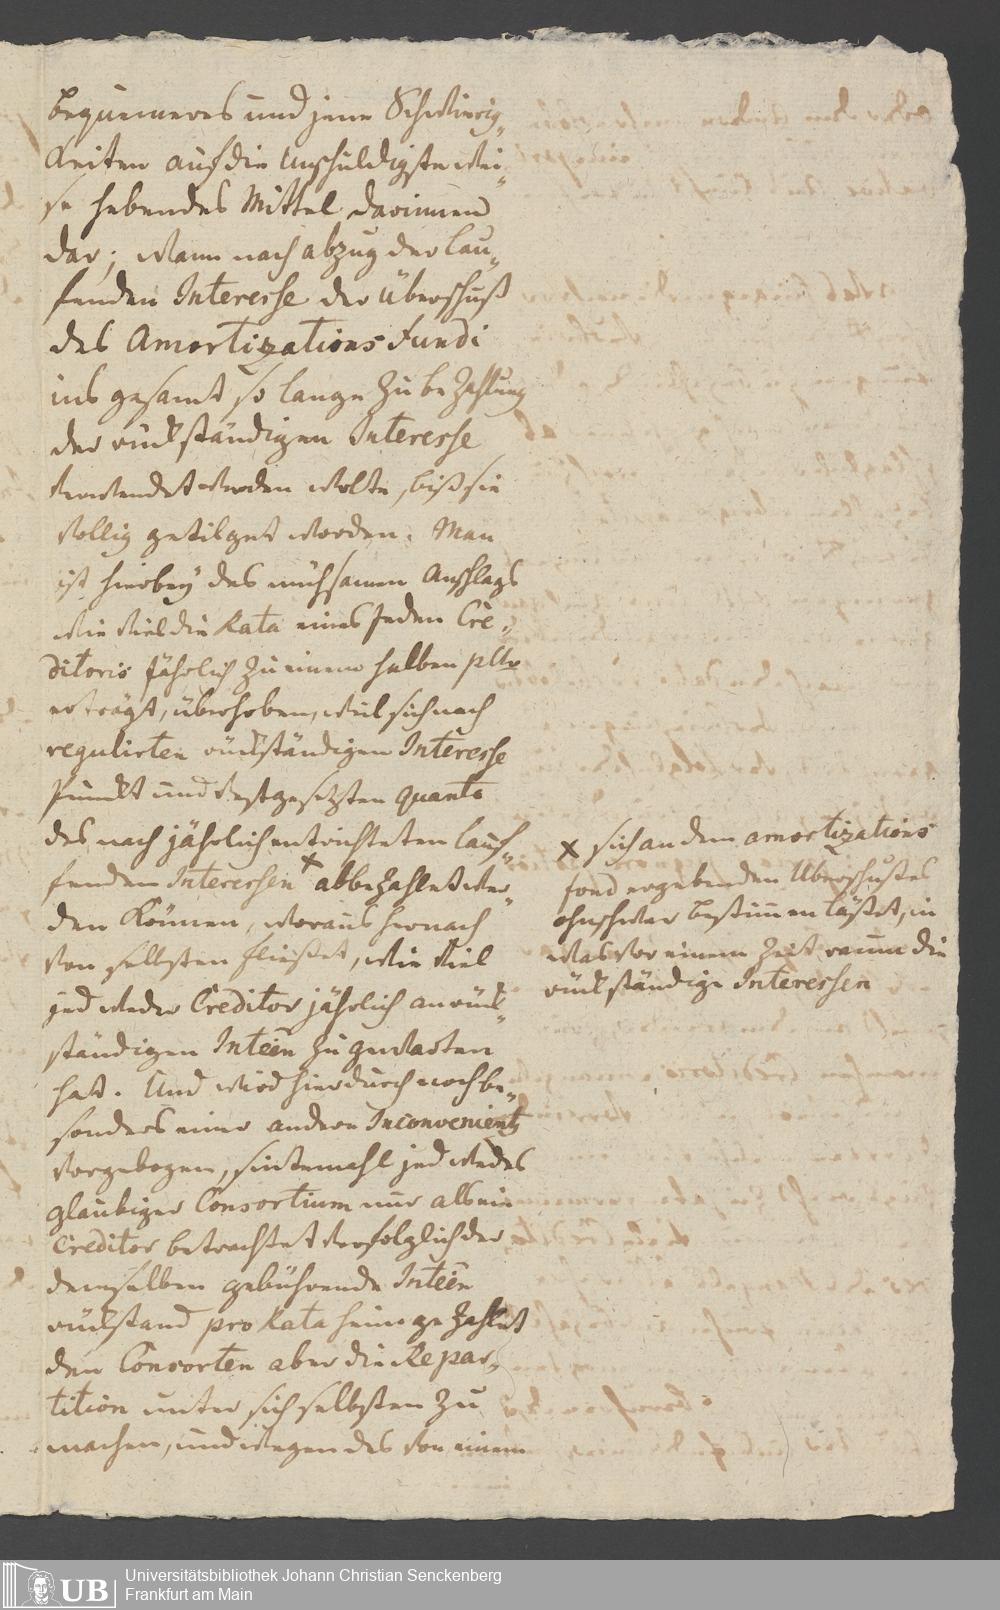 bequemeres und jene Schwürig„
keiten auf die Unschuldigste Wei„
se hebendes Mittel darinnen
dar; Wann nach abzug der lau„
fenden Interesse der Überschuß
des Amortizations Fundi
ins gesamt so lange zu bezahlung
der rückständigen Interesse
verwendet werden wolte, biß sie
völlig getilget worden. Man
ist hierbey des mühsamen Anschlags
wie viel die Rata eines Jeden Cre„
ditoris Jährlich zu einem halben pCto
erträgt, überhoben, weil sich nach
regulirten rückständigen Interesse
Punckt und vestgesetzten quanto
des nach jährlich entrichteten lauf„
fenden Interessen x abbezahlet wer„
den können, woraus hernach
von selbsten fließet, wie viel
jedweder Creditor jährlich an rück„
ständigen Inteen zu gewarten
hat. Und wird hierdurch noch be„
sonders einer andern Inconvenientz
vorgebogen, sintemahl jedwedes
glaubiger Consortium nur als ein
Creditor betrachtet verfolglich der
demselben gebührende Inteen
rückstand pro Rata heimgezahlet
den Consorten aber die Repar„
tition unter sich selbsten zu
machen, und wegen des von einem
x sich an dem amortizations
fond ergebenden Überschusses
ohnschwer bestimmen läßet, in
was vor einem Zeitraum die
rückständige Interessen
UB
Universitätsbibliothek Johann Christian Senckenberg
Frankfurt am Main